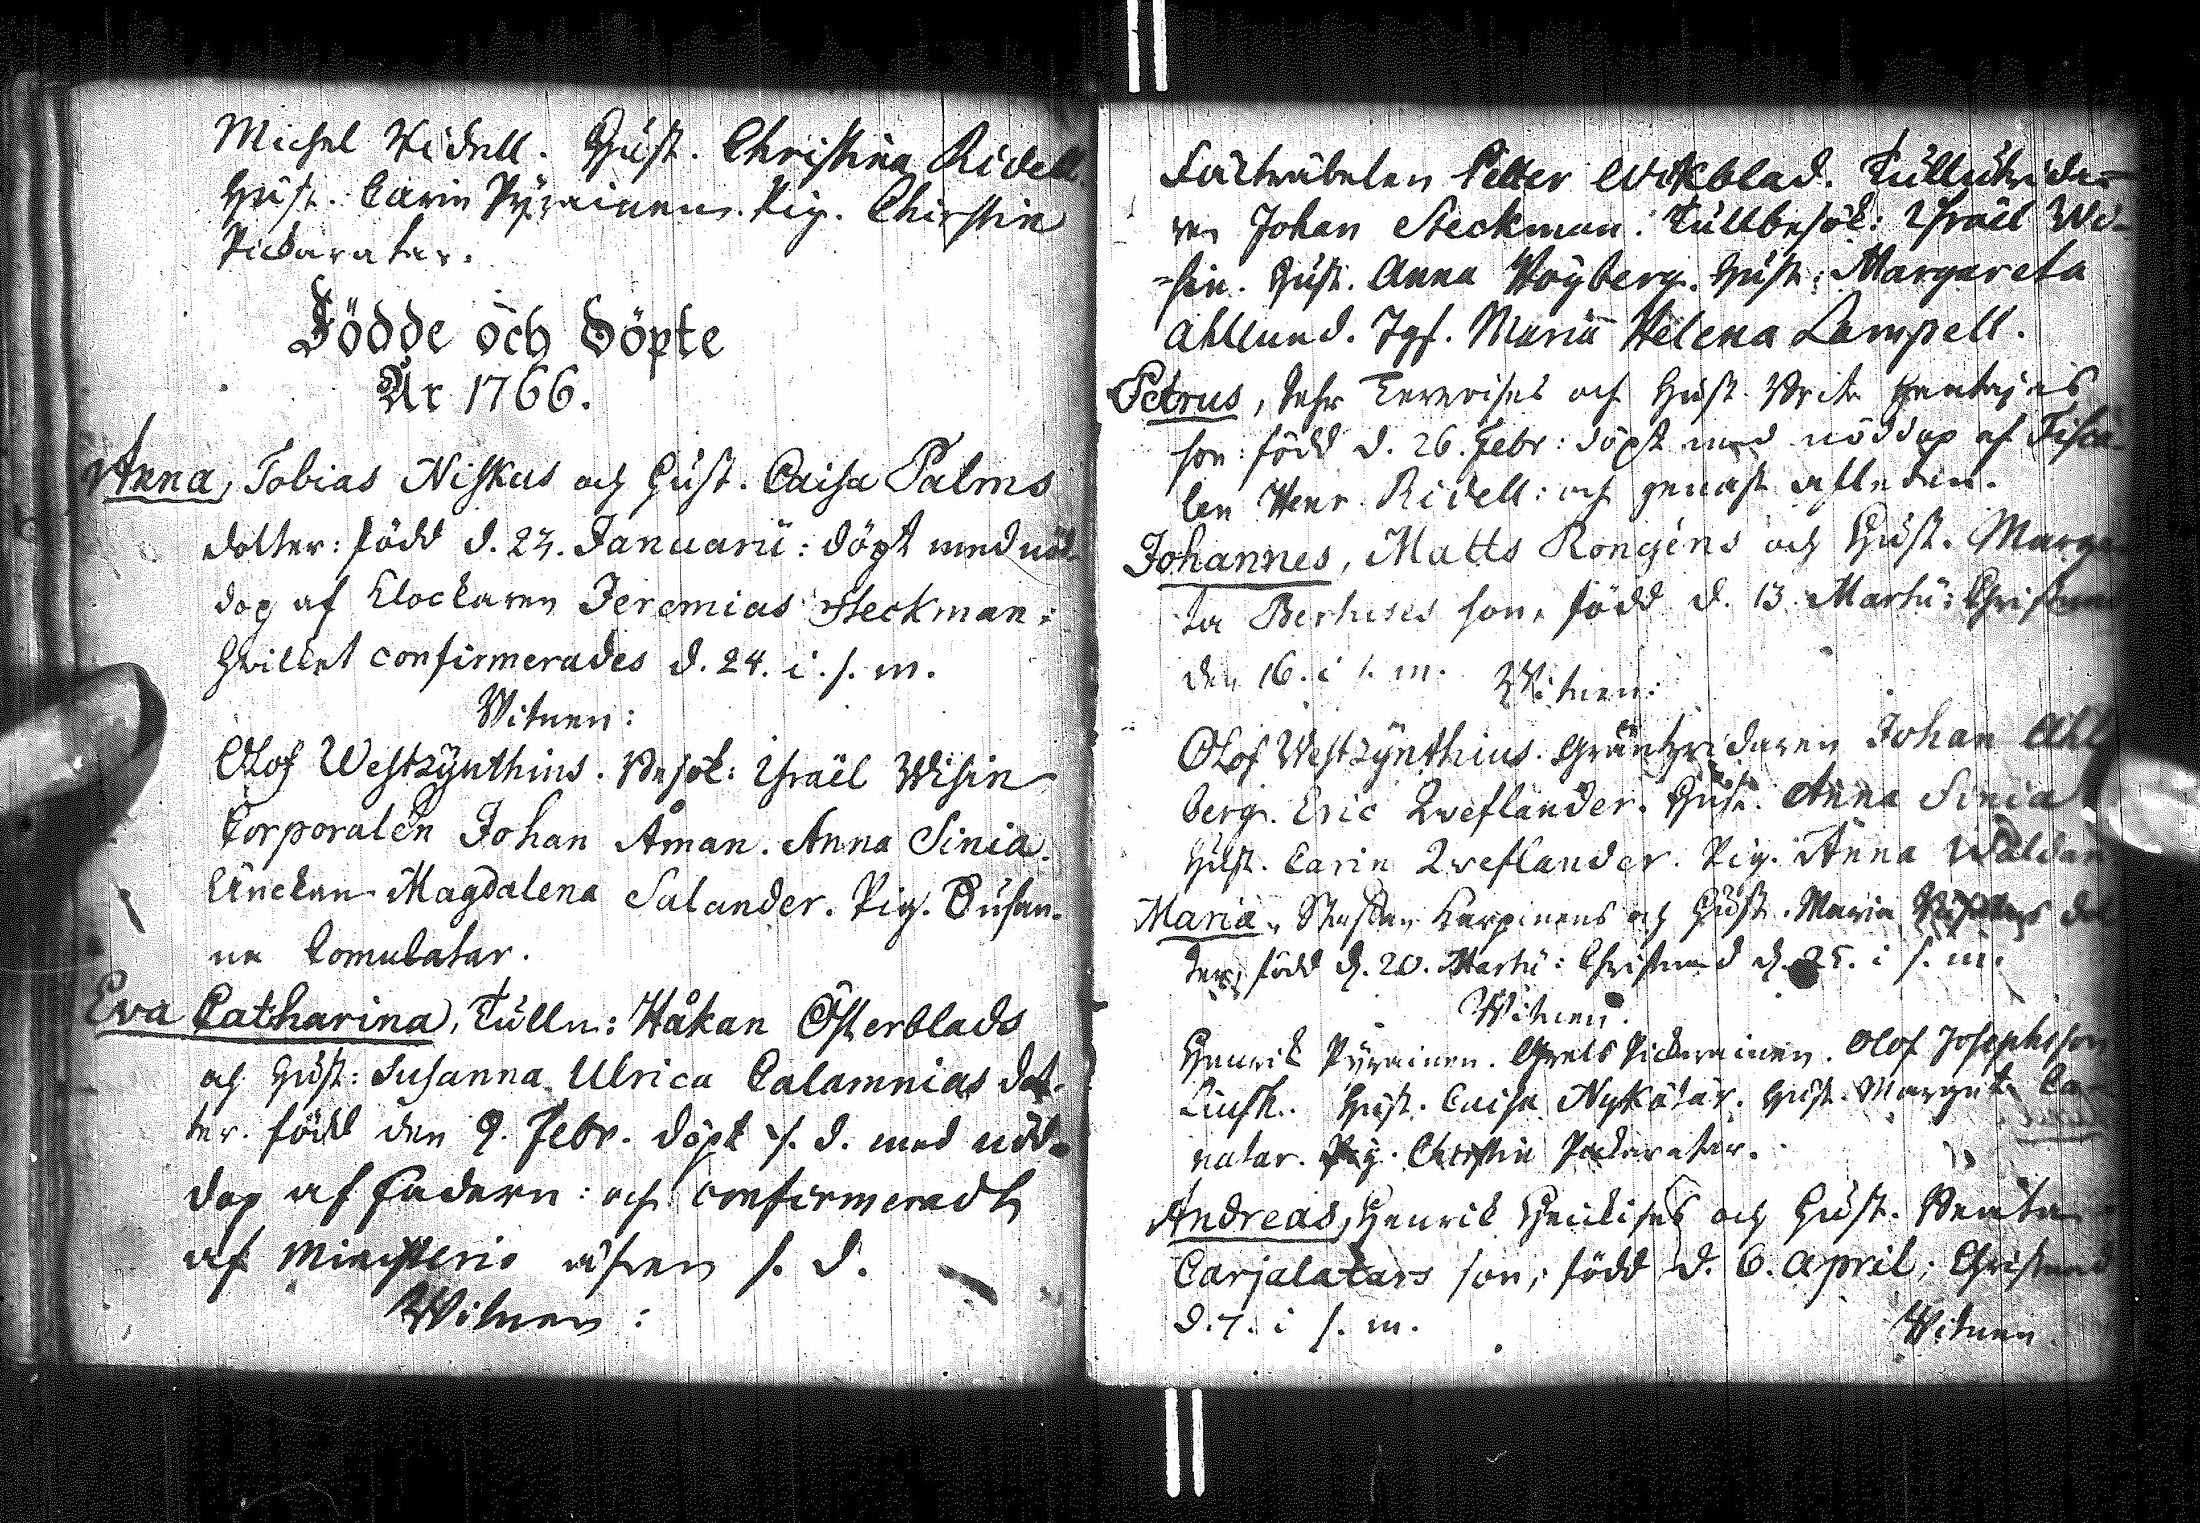 Michel Ridell. Hust. Christina Ridell
Hust. Carin Pÿrainen. Pig. Christin
Pickaratar.
Födde och Döpte
År 1766.
Anna, Tobias Niskus och Hust. Caisa Palms
dotter: född d. 23. Januarii: döpt med nöd-
dop af Klockaren Jeremias Steckman:
hvilket confirmerades d. 24. i. s. m.
Vitnen:
Olof Westzÿnthius. Besök: Israël Wisin
Corporalen Johan Åman. Anna Sinia.
Änckan Magdalena Salander. Pig. Susan-
na
Eva Catharina, Tulln: Håkan Österblads
och Hust: Susanna Ulrica Calamnias dot-
ter. född den 9. Febr. döpt s. d. med nöd-
dop af Fadern: och confirmeradt
af Ministerio äfven s. d.
Witnen:
Petter Wikblad.
ren Johan Steckman: Tullbesök: Israël Wi-
-sin. Hust. Anna Höÿberg. Hust: Margareta
Ahllund. Jgf. Maria Helena Lampell.
Petrus, och Hust. Brita
son: född d. 26. Febr: döpt med nöddop af Fisca-
len Henr. Ridell: och genast afleden.
Johannes, Matts Rongéns och Hust. Marga
ta son, född d. 13. Martii: Christnad
den 16. i s. m. Witnen:
Olof Westzÿnthius. Gräntzridaren Johan Ahl
berg. Eric Zveflander. Hust. Anna Sinia
Hust. Carin Zveflander. Pig. Anna
Maria, Staffan Karpinens och Hust. Maria dot
ter, född d. 20. Martii: Christnad d. 25. i s. m.
Witnen.
Henrik Pÿrainen. Grels Pickarainen. Olof Josephsson
Hust. Caisa Nykätär. Hust. Margeta Ca-
natar. Pig. Christin Pickaratär.
Andreas, Henrik och Hust. Beata
Carjalatars son; född d. 6. April; Christnad
d. 7. i s. m.
Vitnen.